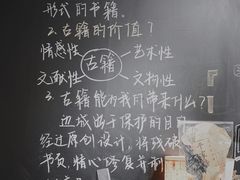 形式的书籍。
2.古籍的价值？
情感性 艺术性
古籍
文献性 文物性
3.古籍能为我们带来什么？
边城出于保护的目的
经过原创设计，将残破
书页，精心修复并制